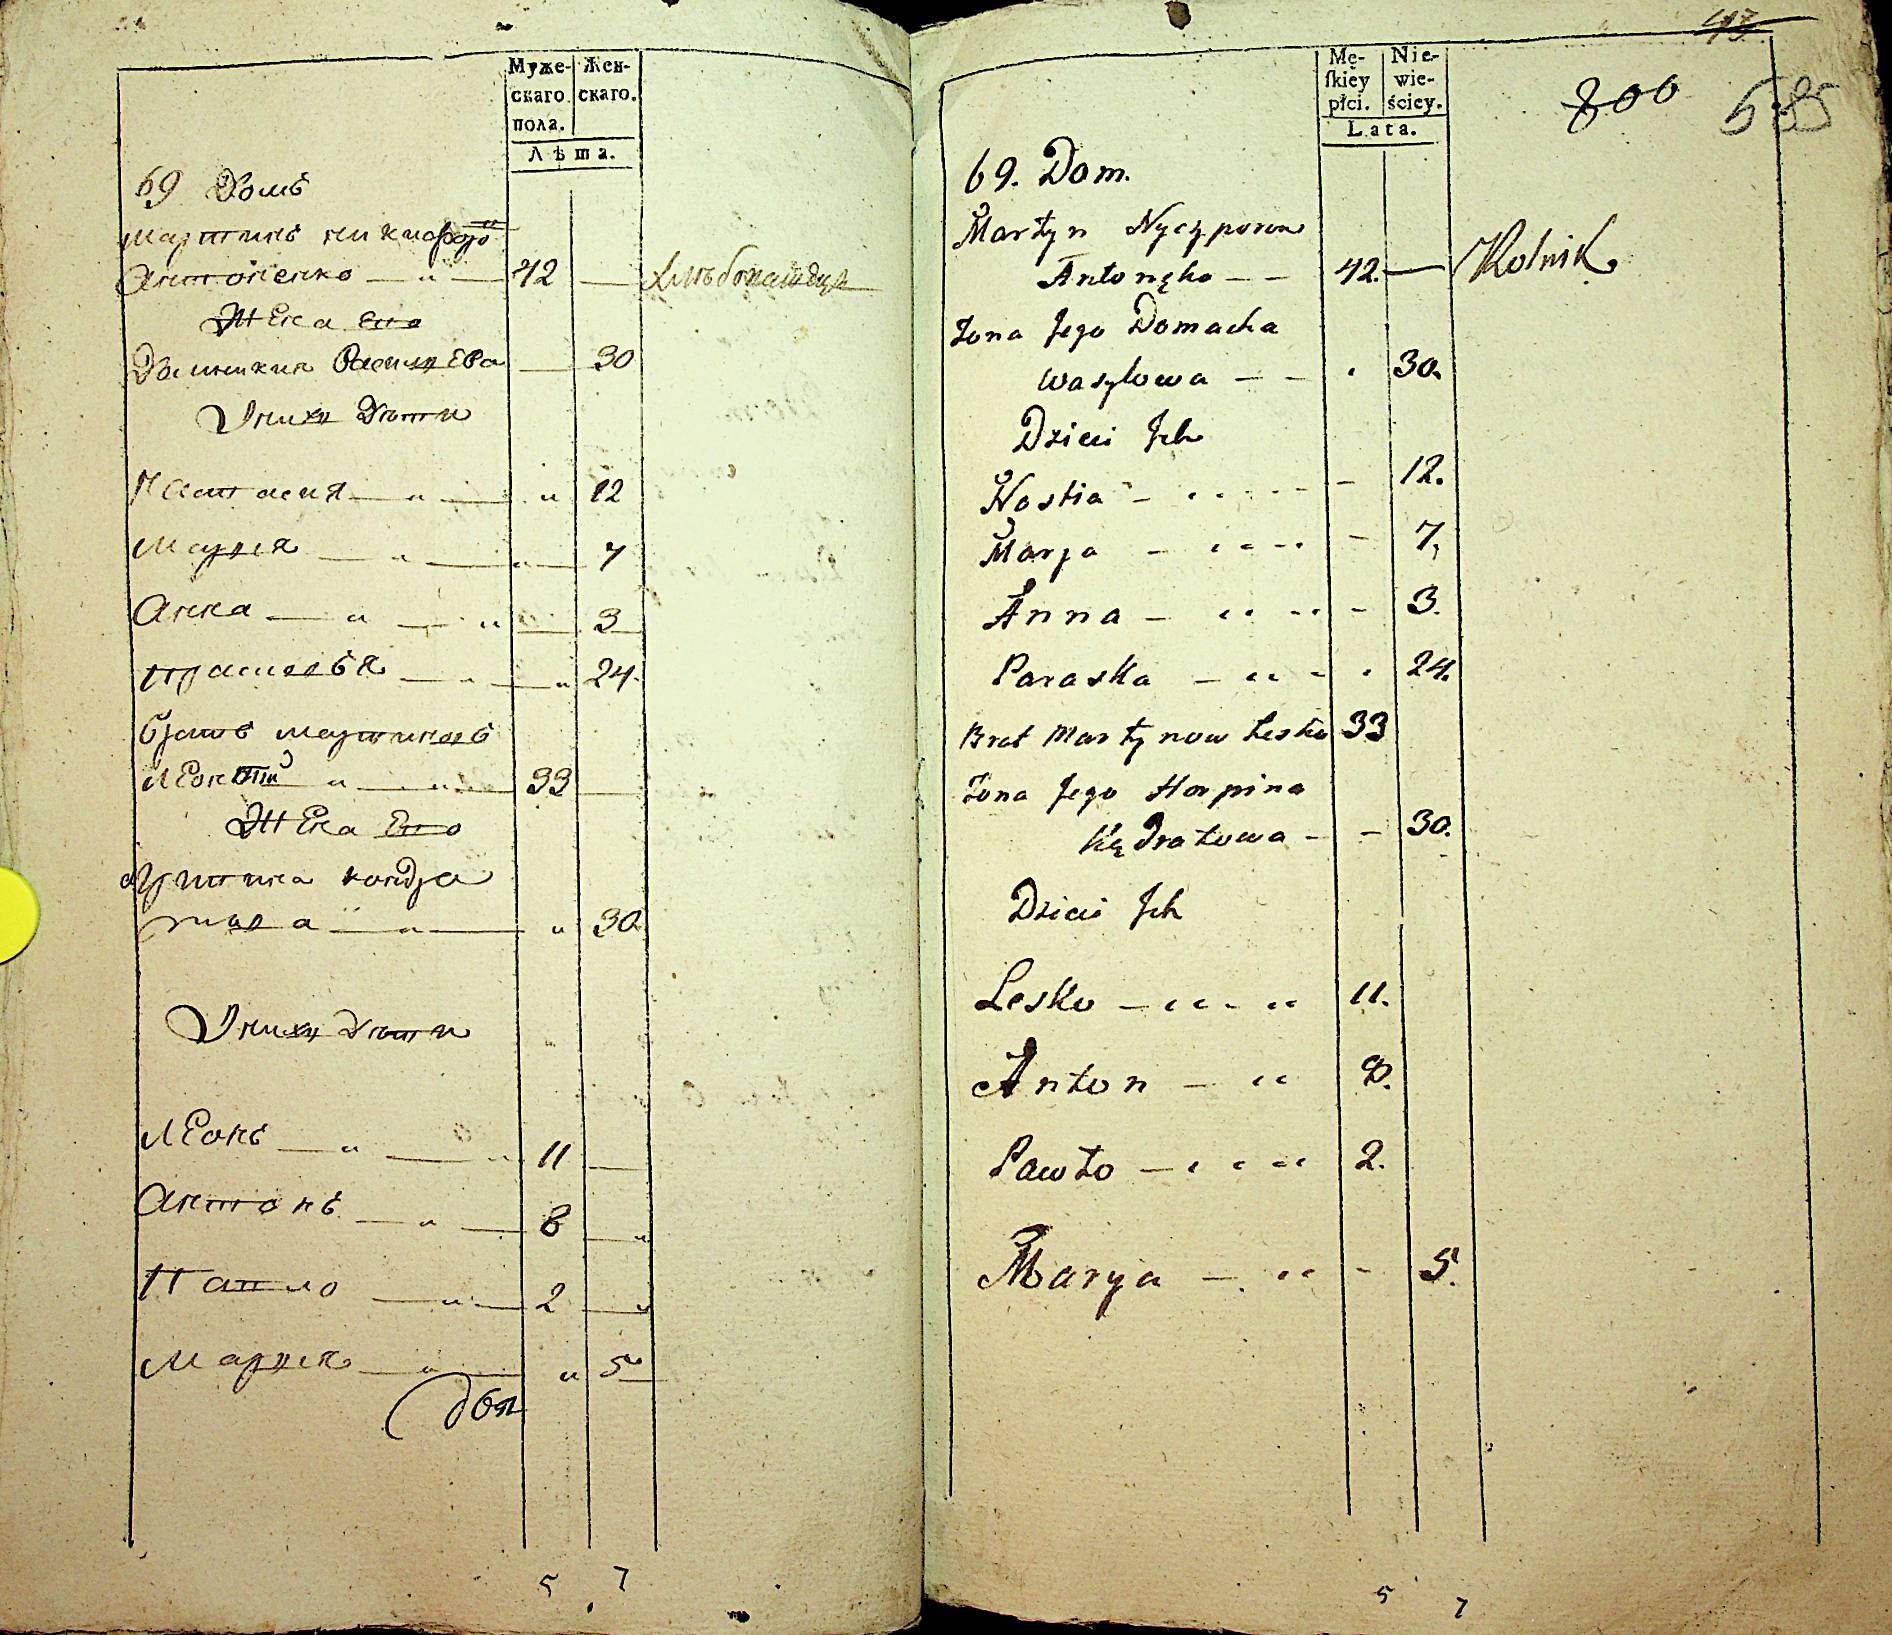 Муже-
скаго
пола.
Жен-
скаго.
Лѣта.
69 Домъ
Мартинъ Никифоро
Антоненко — " — 42 — хлѣбопашецъ
Жена Его
Домникия Василева — 30
У нихъ Дѣти
Настасия — " — " 12
Мария — " — " — 7
Анна — " — " — 3
Прасковья — " — " 24.
братъ мартиновъ
Леонтий " — " — 33 —
Жена Его
Агрипина кондра
това — " — " 30
У нихъ Дѣти
Леонъ — " — " 11 —
Антонъ — " — 8 — "
Павло — " — 2 — "
Мария — " — " 5
5 7
43
Mę-
ſkiéy
płci.
Nie-
wie-
ściey.
Lata.
800 585
69. Dom.
Martyn Nyczyporow
Antonęko - - 42. — Rolnik
Żona Jego Domacha
Wasylowa - - . 30.
Dzieci Jch
Nastia - - 12.
Marja - - 7.
Anna - - 3.
Paraska - . 24.
Brat Martynow Lesko 33
Żona Jego Horpina
Kędratowa - - 30.
Dzieci Jch
Lesko - 11.
Anton - 8.
Pawło - 2.
Marya - - 5.
5 7